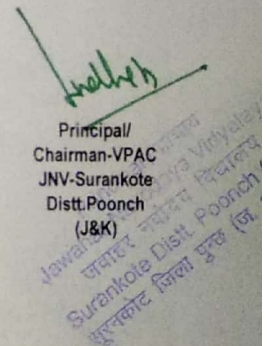 Principal/
Chairman-VPAC
JNV-Surankote
Distt.Poonch
(J&K)
Jawahar Navodaya Vidyalay
जवाहर नवोदय विद्यालय
Surankote Distt. Poonch (
सूरनकोट जिला पुन्छ (ज.